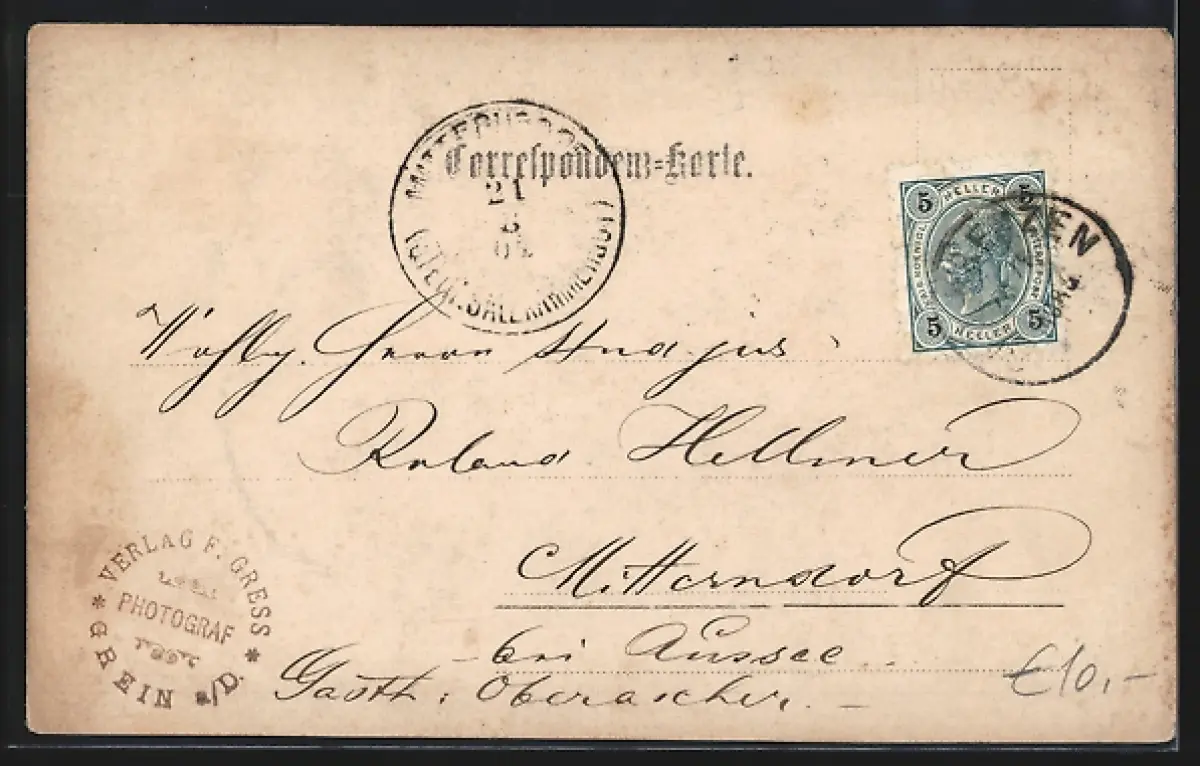 Correspondenz-Karte.
MITTERNDORF
21
5
01
(STEIR. SALZKAMMERGUT)
5 HELLER 5
5 HELLER 5
Wohlg. Herrn
Roland Hellmer
Mitterndorf
bei Aussee
Gasth. Oberascher.
VERLAG F. GRESS
PHOTOGRAF
* GREIN a/D. *
€10,-